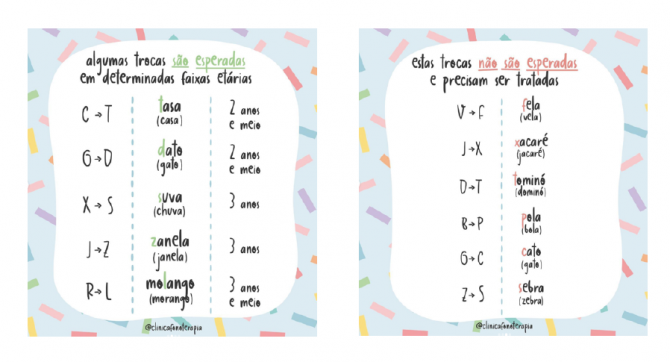 algumas trocas são esperadas
em determinadas faixas etárias
C → T tasa 2 anos
(casa) e meio
G → D dato 2 anos
(gato) e meio
X → S suva 3 anos
(chuva)
J → Z zanela 3 anos
(janela)
R → L molango 3 anos
(morango) e meio
@clinicafonoterapia
estas trocas não são esperadas
e precisam ser tratadas
V → F fela
(vela)
J → X xacaré
(jacaré)
D → T tominó
(dominó)
B → P pola
(bola)
G → C cato
(gato)
Z → S sebra
(zebra)
@clinicafonoterapia